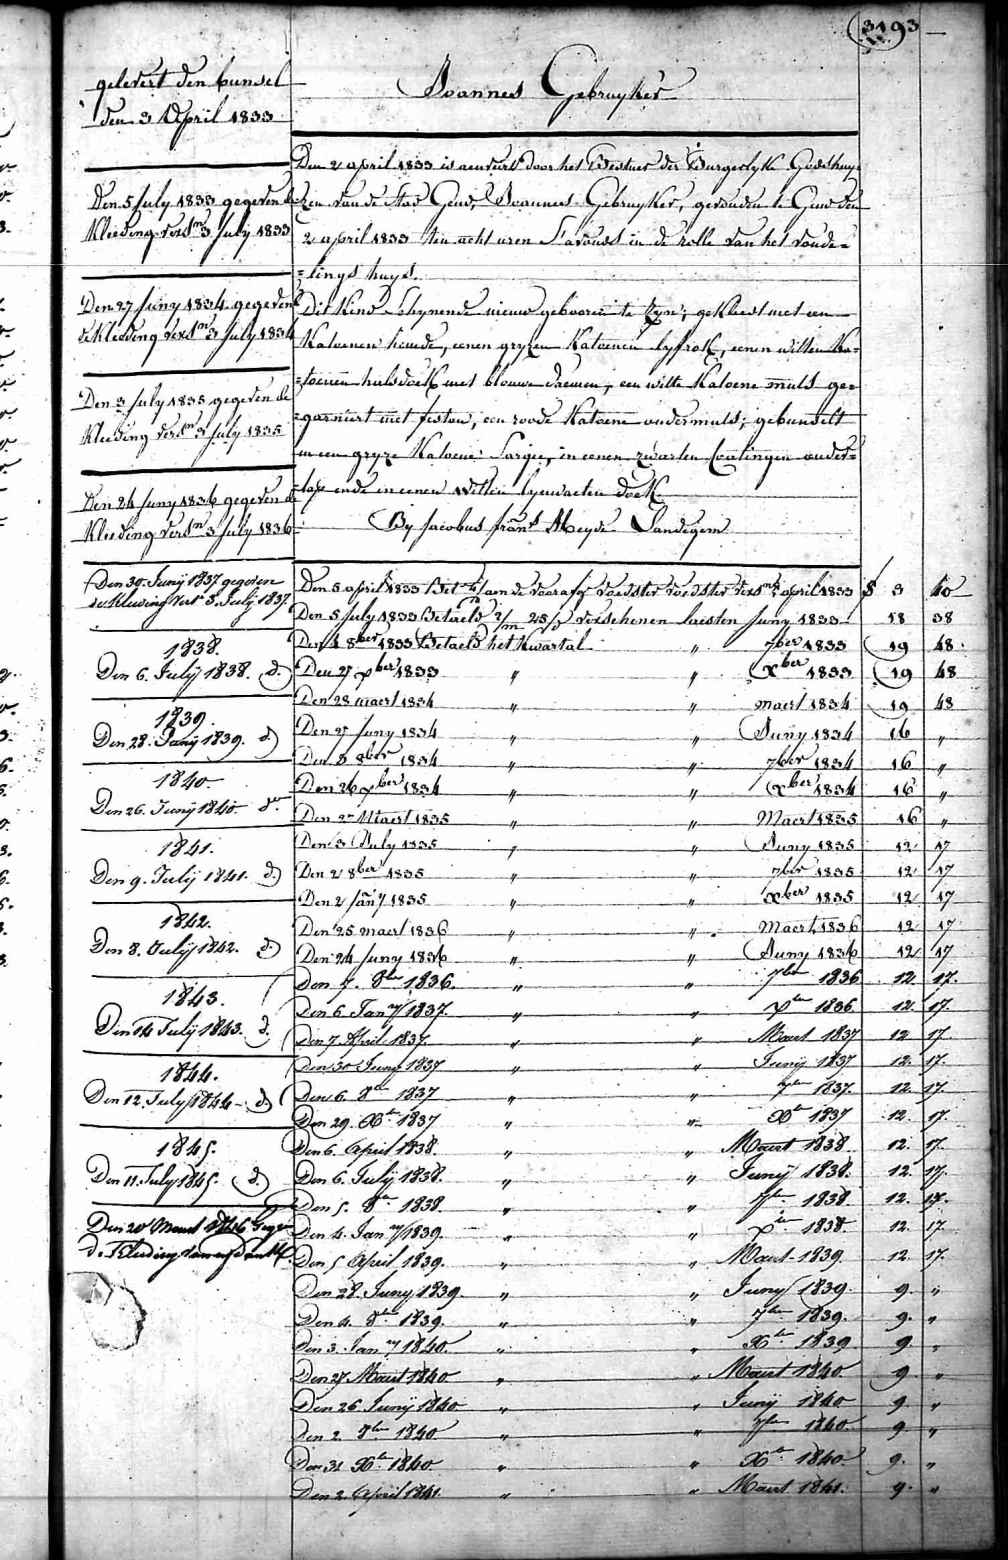 3193
gelevert den bunsel
den 3 April 1833
Joannes Gebruyker
Den 2 april 1833 is aenveirt door het Bestuer der Burgerlyke Godshuy-
zen van de Stad Gend, Joannes Gebruyker, gevonden te Gend den
2 april 1833 ten acht uren s'avonds in de rolle van het vonde-
=lings huys.
Dit kind schynende nieuw gebooren te zyn; gekleed met een
Katoenen hemde, eenen gryzen Katoenen lyfrok, eenen witten Ka-
=toenen halsdoek met blauwe draemen, een witte Katoene muts ge-
=garniert met feston, een roode Katoene ondermuts; gebunselt
in een gryze Katoene Sargie, in eenen zwarten Coatingen onder-
=lap ende in eenen witten lynwaeten doek.
By Jacobus frans Meyde Landegem
Den 5 July 1833 gegeven de
Kleeding verst 3 July 1833
Den 27 Juny 1834 gegeven
de Kleeding verst 3 July 1834
Den 3 July 1835 gegeven de
Kleeding verst 3 July 1835
Den 24 Juny 1836 gegeven de
Kleeding verst 3 July 1836
Den 30. Junij 1837 gegeven
de Kleeding Verst 3. Julij 1837
1838.
Den 6. Julij 1838. d.
1839.
Den 28. Junij 1839. d.
1840.
Den 26. Junij 1840.
1841.
Den 9. Julij 1841. d.
1842.
Den 8. Julij 1842. d.
1843.
Den 14 Julij 1843. d.
1844.
Den 12. July 1844 d.
1845.
Den 11. July 1845. d.
Den 20 Maert 1846 Gegev
de Kleeding
Den 5 april 1833 Bet aen de voorafg voedster verst 3 april 1833 f 3 10
Den 5 July 1833 Betaeld 2/m 28/d verschenen laesten Juny 1833 18 38
Den 4 8ber 1833 Betaeld het Kwartal " 7ber 1833 19 48
Den 27 xber 1833 " " xber 1833 19 48
Den 28 maert 1834 " " maert 1834 19 48
Den 27 Juny 1834 " " Juny 1834 16 "
Den 3 8ber 1834 " " 7ber 1834 16 "
Den 26 xber 1834 " " xber 1834 16 "
Den 27 Maert 1835 " " Maert 1835 16 "
Den 3 July 1835 " " Juny 1835 12 17
Den 2 8ber 1835 " " 7ber 1835 12 17
Den 2 Jany 1835 " " xber 1835 12 17
Den 25 maert 1836 " " Maert 1836 12 17
Den 24 Juny 1836 " " Juny 1836 12 17
Den 7. 8ber 1836. " " 7ber 1836 12. 17.
Den 6 Jany 1837. " " xber 1836 12. 17.
Den 7. April 1837. " " Maert 1837 12 17
Den 30 Juny 1837 " " Junij 1837 12. 17.
Den 6. 8ber 1837 " " 7ber 1837. 12. 17.
Den 29. Xber 1837 " " Xber 1837 12. 17.
Den 6. April 1838. " " Maert 1838 12. 17.
Den 6. Julij 1838. " " Junij 1838. 12. 17.
Den 5. 8ber 1838. " " 7ber 1838 12. 17.
Den 4. Jany 1839. " " xber 1838 12. 17
Den 5 April 1839. " " Maert 1839. 12. 17.
Den 28. Juny 1839. " " Juny 1839. 9. "
Den 4. 8ber 1839. " " 7ber 1839. 9. "
Den 3. Jany 1840. " " Xber 1839 9. "
Den 27. Maert 1840 " " Maert 1840. 9 "
Den 26 Junij 1840 " " Junij 1840 9. "
Den 2. 8ber 1840. " " 7ber 1840. 9. "
Den 31 Xber 1840. " " Xber 1840. 9. "
Den 2. April 1841. " " Maert 1841. 9. "